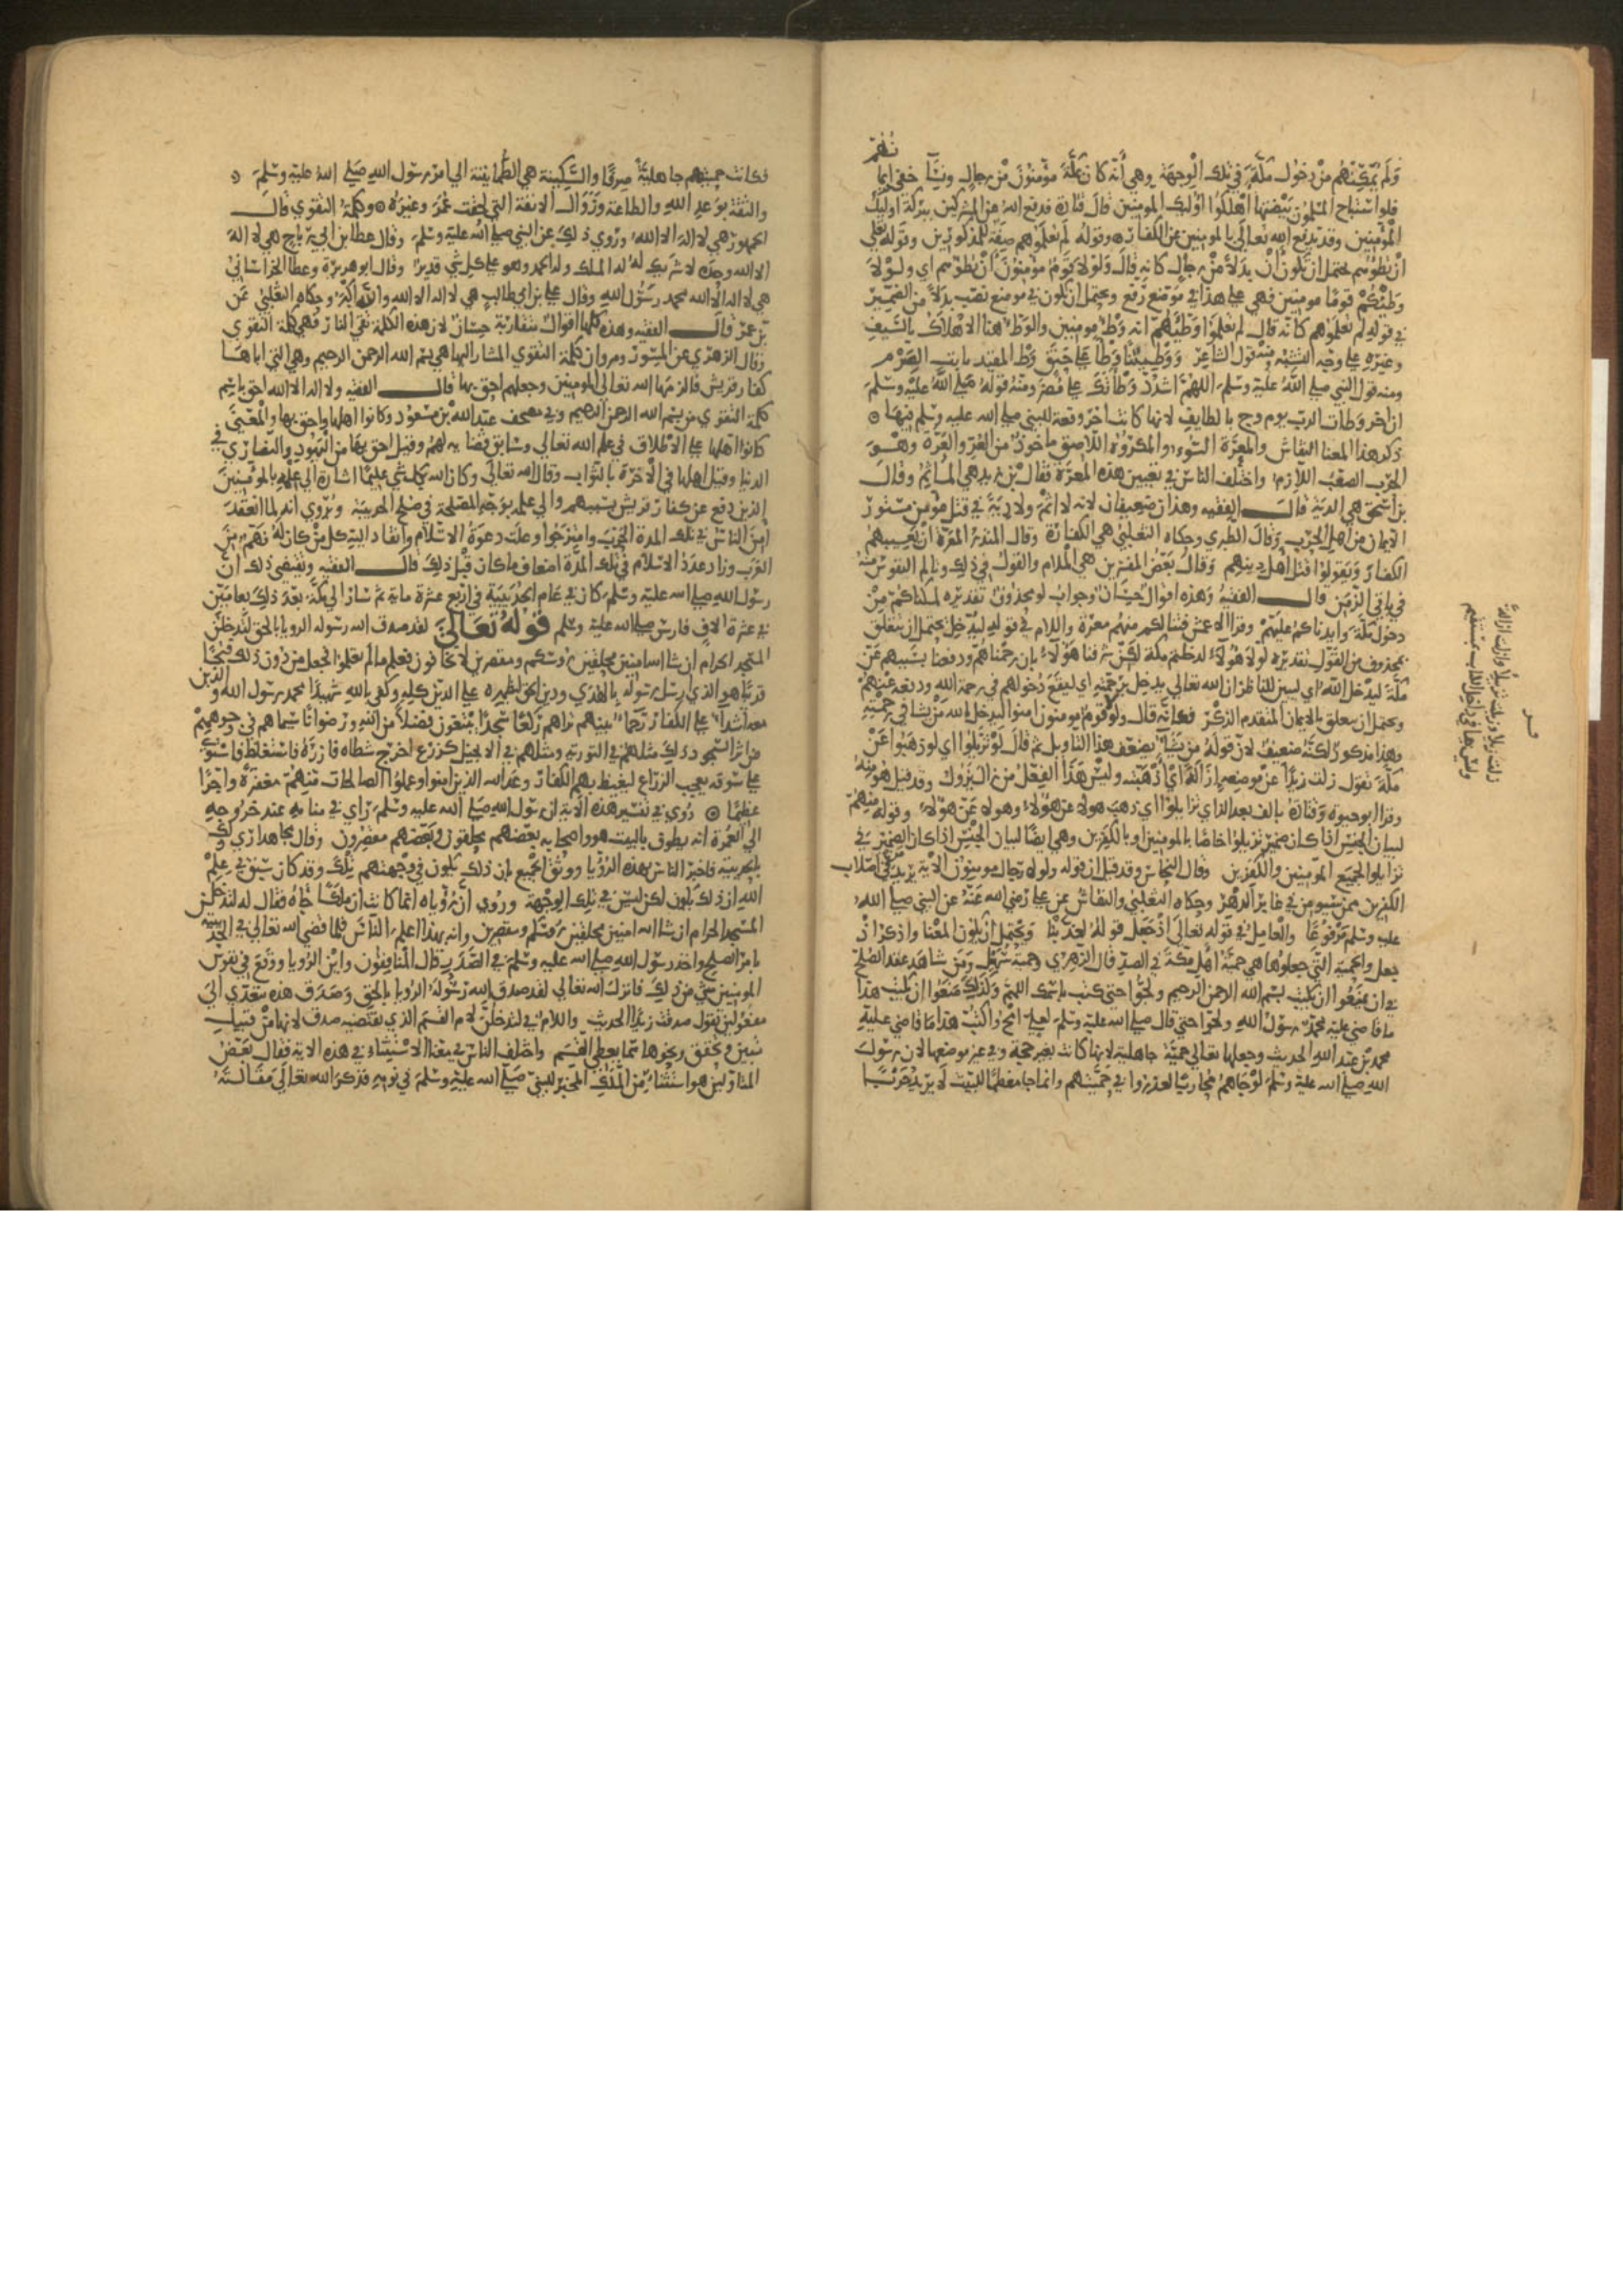 ولم يمكنهم من دخول مكة في تلك الوجهة وهي أنه كان بمكة مؤمنون من رجال ونسآ خفي ايما
نهم
فلو استباح المسلمون بيضتها اهلكوا اوليك المومنين قال قتادة فدفع الله عن المشركين ببركة اوليك
المؤمنين وقد يدفع الله تعالى بالمومنين عن الكفار وقوله لم تعلموهم صفة للمذكورين وقوله تعلي
ان تطؤهم يحتمل ان تكون أن بدلاً من رجال كانه قال ولولا قوم مؤمنون أن تطؤهم اي ولولا
وطئكم قوما مومنين فهي علي هذا في موضع رفع ويحتمل ان تكون في موضع نصب بدلاً من الضمير
في قوله لم تعلموهم كانه قال لم تعلموا وطئهم انه وطؤ مومنين والوطؤ هنا الاهلاك بالسيف
وغيره علي وجه التشبيه ومنه قول الشاعر ووطيتنا وطأً علي حنق وطأ المقيد نابت الهرم
ومنه قول النبي صلي الله عليه وسلم اللهم اشدد وطأتك علي مضر ومنه قوله صلي الله عليه وسلم
ان اخر وطأة الرب يوم وج بالطايف لانها كانت اخر وقعة للنبي صلي الله عليه وسلم فيها
ذكر هذا المعنا النقاش والمعرة السوء والمكروه اللاصق ماخوذ من العر والعرة وهو
الجرب الصعب اللازم واختلف الناس في تعيين هذه المعرة فقال بن زيد هي المأثم وقال
بن اسحق هي الدية قال الفقيه وهذان ضعيفان لانه لا اثم ولا دية في قتل مؤمن مستور
الايمان من اهل الحرب وقال الطبري وحكاه الثعلبي هي الكفارة وقال المنذر المعرة ان يعيبهم
الكفار ويقولوا قتل اهل دينهم وقال بعض المفسرين هي الملام والقول في ذلك وتالم النفوس منه
في باقي الزمن قال الفقيه وهذه اقوال حسان وجواب لو محذوف تقديره لمكناكم من
دخول مكة وايدناكم عليهم وقرا الاعمش فتنالكم منهم معرة واللام في قوله ليدخل يحتمل ان يتعلق
بمحذوف من القول تقديره لولا هؤلاء لدخلتم مكة لكن شرفنا هؤلاء بان رحمناهم ودفعنا بسببهم عن
مكة ليدخل الله اي ليبين للناظر ان الله تعالي يدخل من يشا في رحمته اي ليقع دخولهم في رحمة الله ودفعه عنهم
ويحتمل ان يتعلق بالايمان المتقدم الذكر فكانه قال ولولا قوم مومنون امنوا ليدخل الله من يشا في رحمته
وهذا مذكور لكنه ضعيف لان قوله من يشآ يضعف هذا التاويل ثم قال لو تزيلوا اي لو ذهبوا عن
مكة تقول زلت زيدًا عن موضعه ازالة اي اذهبته وليس هذا الفعل من زال يزول وقد قيل هو منه
وقرا ابو حيوة وقتادة بالف بعد الزاي تزايلوا اي ذهب هولاء عن هؤلاء وهولاء عن هولاء وقوله منهم
لبيان الجنس اذا كان ضمير تزيلوا خاصًا بالمومنين او بالكفرين وهي ايضًا لبيان الجنس اذا كان الضمير في
تزايلوا لجميع المؤمنين والكفرين وقال النحاس وقد قيل ان قوله ولولا رجال مومنون الاية يريد من في اصلاب
الكفرين ممن سيومن في غابر الدهر وحكاه الثعلبي والنقاش عن علي رضي الله عنه عن النبي صلي الله
عليه وسلم مرفوعًا والعامل في قوله تعالي اذ جعل قوله لعذبنا ويحتمل ان يكون المعنا واذكر اذ
جعل والحمية التي جعلوها هي حمية اهل مكة في الصد قال الزهري وحمية سهيل ومن شاهد عقد الصلح
في ان يمنعوا ان يكتب بسم الله الرحمن الرحيم ولجوا حتى كتب باسمك اللهم وكذلك منعوا ان يكتب هذا
ما قاضي عليه محمد رسول الله ولجوا حتي قال صلي الله عليه وسلم لعلي امح واكتب هذا ما قاضي عليه
محمد بن عبد الله الحديث وجعلها تعالي حمية جاهلية لانها كانت بغير حجة وفي غير موضعها لان رسول
الله صلي الله عليه وسلم لو جاهم محاربًا لعذروا في حميتهم وانما جا معظمًا للبيت لا يريد حربًا
فكانت حميتهم جاهلية صرفًا والسكينة هي الطمانينة الي امر رسول الله صلي الله عليه وسلم
والثقة بوعد الله والطاعة وزوال الانفة التي لحقت عمر وغيره وكلمة التقوي قال
الجمهور هي لا اله الا الله وروي ذلك عن النبي صلي الله عليه وسلم وقال عطا بن ابي رباح هي لا اله
الا الله وحده لا شريك له له الملك وله الحمد وهو علي كل شي قدير وقال ابو هريرة وعطا الخراساني
هي لا اله الا الله محمد رسول الله وقال علي بن ابي طالب هي لا اله الا الله والله اكبر وحكاه الثعلبي عن
بن عمر قال الفقيه وهذه كلها اقوال متقاربة حسان لان هذه الكلمة تقي النار فهي كلمة التقوي
وقال الزهري عن المسور ومروان كلمة التقوي المشار اليها هي بسم الله الرحمن الرحيم وهي التي اباها
كفار قريش فالزمها الله تعالي المومنين وجعلهم احق بها قال الفقيه ولا اله الا الله احق باسم
كلمة التقوي من بسم الله الرحمن الرحيم وفي مصحف عبد الله بن مسعود وكانوا اهلها واحق بها والمعني
كانوا اهلها علي الاطلاق في علم الله تعالي وسابق قضايه لهم وقيل احق بها من اليهود والنصاري في
الدنيا وقيل اهلها في الآخرة بالثواب وقال الله تعالي وكان الله بكل شي عليمًا اشارة الي علمه بالمؤمنين
الذين دفع عن كفار قريش بسببهم والي علمه بوجه المصلحة في صلح الحديبية ويروي انه لما انعقد
امن الناس في تلك المدة الحرب وامتزجوا وعلت دعوة الاسلام وانقاد اليه كل من كان له فهم من
العرب وزاد عدد الاسلام في تلك المدة اضعاف ما كان قبل ذلك قال الفقيه ويقتضي ذلك ان
رسول الله صلي الله عليه وسلم كان في عام الحديبية في اربع عشرة ماية ثم سار الي مكة بعد ذلك بعامين
في عشرة الاف فارس صلي الله عليه وسلم قوله تعالي لقد صدق الله رسوله الرويا بالحق لتدخلن
المسجد الحرام ان شا الله امنين محلقين رءوسكم ومقصرين لا تخافون فعلم ما لم تعلموا فجعل من دون ذلك فتحًا
قريبًا هو الذي ارسل رسوله بالهدي ودين الحق ليظهره علي الدين كله وكفي بالله شهيدًا محمد رسول الله والذين
معه اشدآ علي الكفار رحمآ بينهم تراهم ركعًا سجدًا يبتغون فضلاً من الله ورضوانًا سيماهم في وجوههم
من اثر السجود ذلك مثلهم في التورية ومثلهم في الانجيل كزرع اخرج شطاه فازره فاستغلظ فاستوي
علي سوقه يعجب الزراع ليغيظ بهم الكفار وعد الله الذين امنوا وعملوا الصالحات منهم مغفرة واجرًا
عظيمًا روي في تفسير هذه الاية ان رسول الله صلي الله عليه وسلم راي في منامه عند خروجه
الي العمرة انه يطوف بالبيت هو واصحابه بعضهم محلقون وبعضهم مقصرون وقال مجاهد اري ذلك
بالحديبية فاخبر الناس بهذه الرؤيا ووثق الجميع بان ذلك يكون في وجهتهم تلك وقد كان سبق في علم
الله ان ذلك يكون لكن ليس في تلك الوجهة وروي ان رؤياه انما كانت ان ملكًا جاه فقال له لتدخلن
المسجد الحرام ان شا الله امنين محلقين رءوسكم ومقصرين وانه بهذا اعلم الناس فلما قضي الله تعالي في الحديبية
بامر الصلح واخذ رسول الله صلي الله عليه وسلم في الصدر قال المنافقون واين الرويا ووقع في نفوس
المومنين شي من ذلك فانزل الله تعالي لقد صدق الله رسوله الرويا بالحق وصدق هذه تتعدي الي
مفعولين تقول صدقت زيدًا الحديث واللام في لتدخلن لام القسم الذي تقتضيه صدق لانها من قبيل
تبين وتحقق ونحوها مما يعطي القسم واختلف الناس في معنا الاستثناء في هذه الاية فقال بعض
المتاولين هو استثناء من الملك المخبر للنبي صلي الله عليه وسلم في نومه فذكر الله تعالي مقالته